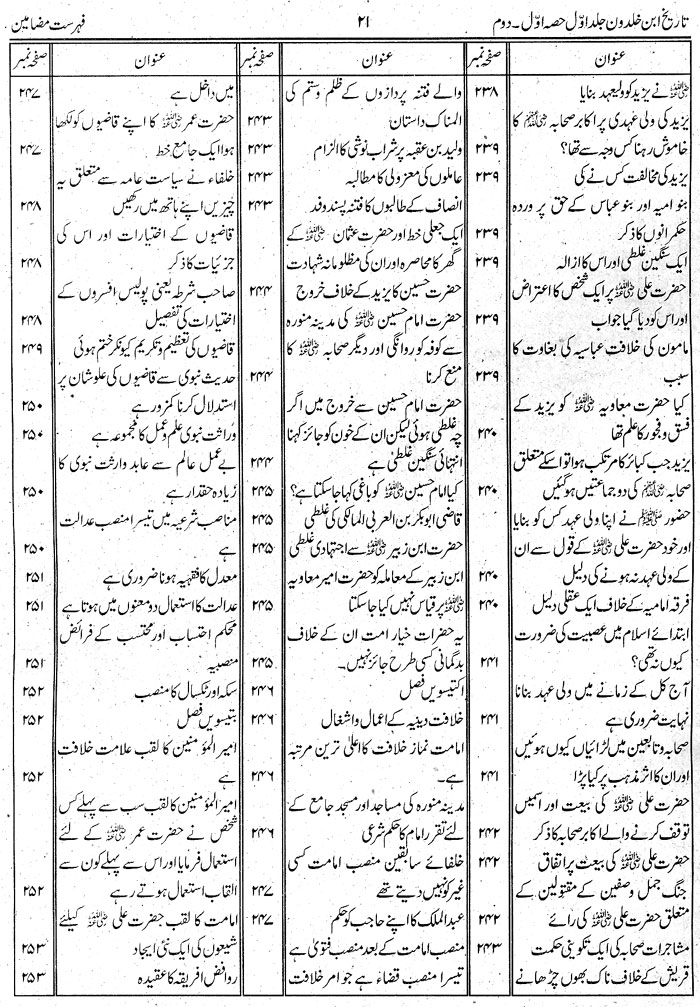 تاریخ ابن خلدون جلد اوّل حصہ اوّل۔ دوم ۲۱ فہرست مضامین
عنوان صفحہ نمبر
نے یزید کو ولیعہد بنایا ۲۳۸
یزید کی ولی عہدی پر اکابر صحابہ کا
خاموش رہنا کس وجہ سے تھا؟ ۲۳۹
یزید کی مخالفت کس نے کی ۲۳۹
بنو امیہ اور بنو عباس کے حق پر وردہ
حکمرانوں کا ذکر ۲۳۹
ایک سنگین غلطی اور اس کا ازالہ ۲۳۹
حضرت علی پر ایک شخص کا اعتراض
اور اس کو دیا گیا جواب ۲۳۹
مامون کی خلافت عباسیہ کی بغاوت کا
سبب ۲۳۹
کیا حضرت معاویہ کو یزید کے
فسق و فجور کا علم تھا ۲۴۰
یزید جب کبائر کا مرتکب ہوا تو اسکے متعلق
صحابہ کی دو جماعتیں ہو گئیں ۲۴۰
حضور نے اپنا ولی عہد کس کو بنایا
اور خود حضرت علی کے قول سے ان
کے ولی عہد نہ ہونے کی دلیل ۲۴۰
فرقہ امامیہ کے خلاف ایک عقلی دلیل ۲۴۰
ابتدائے اسلام میں عصبیت کی ضرورت
کیوں نہ تھی؟ ۲۴۱
آج کل کے زمانے میں ولی عہد بنانا
نہایت ضروری ہے ۲۴۱
صحابہ و تابعین میں لڑائیاں کیوں ہوئیں
اور ان کا اثر مذہب پر کیا پڑا ۲۴۱
حضرت علی کی بیعت اور اسمیں
توقف کرنے والے اکابر صحابہ کا ذکر ۲۴۲
حضرت علی کی بیعت پر اتفاق ۲۴۲
جنگ جمل و صفین کے مقتولین کے
متعلق حضرت علی کی رائے ۲۴۲
مشاجرات صحابہ کی ایک تکوینی حکمت ۲۴۳
قریش کے خلاف ناک بھوں چڑھانے
عنوان صفحہ نمبر
والے فتنہ پردازوں کے ظلم و ستم کی
المناک داستان ۲۴۳
ولید بن عقبہ پر شراب نوشی کا الزام ۲۴۳
عاملوں کی معزولی کا مطالبہ ۲۴۳
انصاف کے طالبوں کا فتنہ پسند وفد ۲۴۳
ایک جعلی خط اور حضرت عثمان کے
گھر کا محاصرہ اور ان کی مظلومانہ شہادت
حضرت حسین کا یزید کے خلاف خروج ۲۴۴
حضرت امام حسین کی مدینہ منورہ
سے کوفہ کو روانگی اور دیگر صحابہ کا
منع کرنا ۲۴۴
حضرت امام حسین سے خروج میں اگر
چہ غلطی ہوئی لیکن ان کے خون کو جائز کہنا
انتہائی سنگین غلطی ہے ۲۴۴
کیا امام حسین کو باغی کہا جا سکتا ہے؟ ۲۴۵
قاضی ابوبکر بن العربی المالکی کی غلطی ۲۴۵
حضرت ابن زبیر سے اجتہادی غلطی ۲۴۵
ابن زبیر کے معاملہ کو حضرت امیر معاویہ
پر قیاس نہیں کیا جا سکتا ۲۴۵
یہ حضرات خیار امت ان کے خلاف
بدگمانی کسی طرح جائز نہیں۔ ۲۴۵
اکتیسویں فصل ۲۴۶
خلافت دینیہ کے اعمال و اشغال ۲۴۶
امامت نماز خلافت کا اعلیٰ ترین مرتبہ
ہے۔ ۲۴۶
مدینہ منورہ کی مساجد اور مسجد جامع کے
لئے تقرر امام کا حکم شرعی ۲۴۶
خلفائے سابقین منصب امامت کسی
غیر کو نہیں دیتے تھے ۲۴۷
عبدالملک کا اپنے حاجب کو حکم ۲۴۷
منصب امامت کے بعد منصب فتویٰ ہے
تیسرا منصب قضاء ہے جو امر خلافت
عنوان صفحہ نمبر
میں داخل ہے ۲۴۷
حضرت عمر کا اپنے قاضیوں کو لکھا
ہوا ایک جامع خط ۲۴۷
خلفاء نے سیاست عامہ سے متعلق یہ
چیزیں اپنے ہاتھ میں رکھیں ۲۴۸
قاضیوں کے اختیارات اور اس کی
جزئیات کا ذکر ۲۴۸
صاحب شرطہ یعنی پولیس افسروں کے
اختیارات کی تفصیل ۲۴۸
قاضیوں کی تعظیم و تکریم کیونکر ختم ہوئی ۲۴۹
حدیث نبوی سے قاضیوں کی علوشان پر
استدلال کرنا کمزور ہے ۲۵۰
وراثت نبوی علم و عمل کا مجموعہ ہے ۲۵۰
بے عمل عالم سے عابد وارثت نبوی کا
زیادہ حقدار ہے ۲۵۰
مناصب شرعیہ میں تیسرا منصب عدالت
ہے ۲۵۰
معدل کا فقہیہ ہونا ضروری ہے ۲۵۱
عدالت کا استعمال دو معنوں میں ہوتا ہے ۲۵۱
محکم احتساب اور محتسب کے فرائض
منصبیہ ۲۵۱
سکہ اور ٹکسال کا منصب ۲۵۲
بتیسویں فصل ۲۵۲
امیر المؤمنین کا لقب علامت خلافت
ہے ۲۵۲
امیر المؤمنین کا لقب سب سے پہلے کس
شخص نے حضرت عمر کے لئے
استعمال فرمایا اور اس سے پہلے کون سے
القاب استعمال ہوتے رہے ۲۵۲
امامت کا لقب حضرت علی کیلئے
شیعوں کی ایک نئی ایجاد ۲۵۳
روافض افریقہ کا عقیدہ ۲۵۳